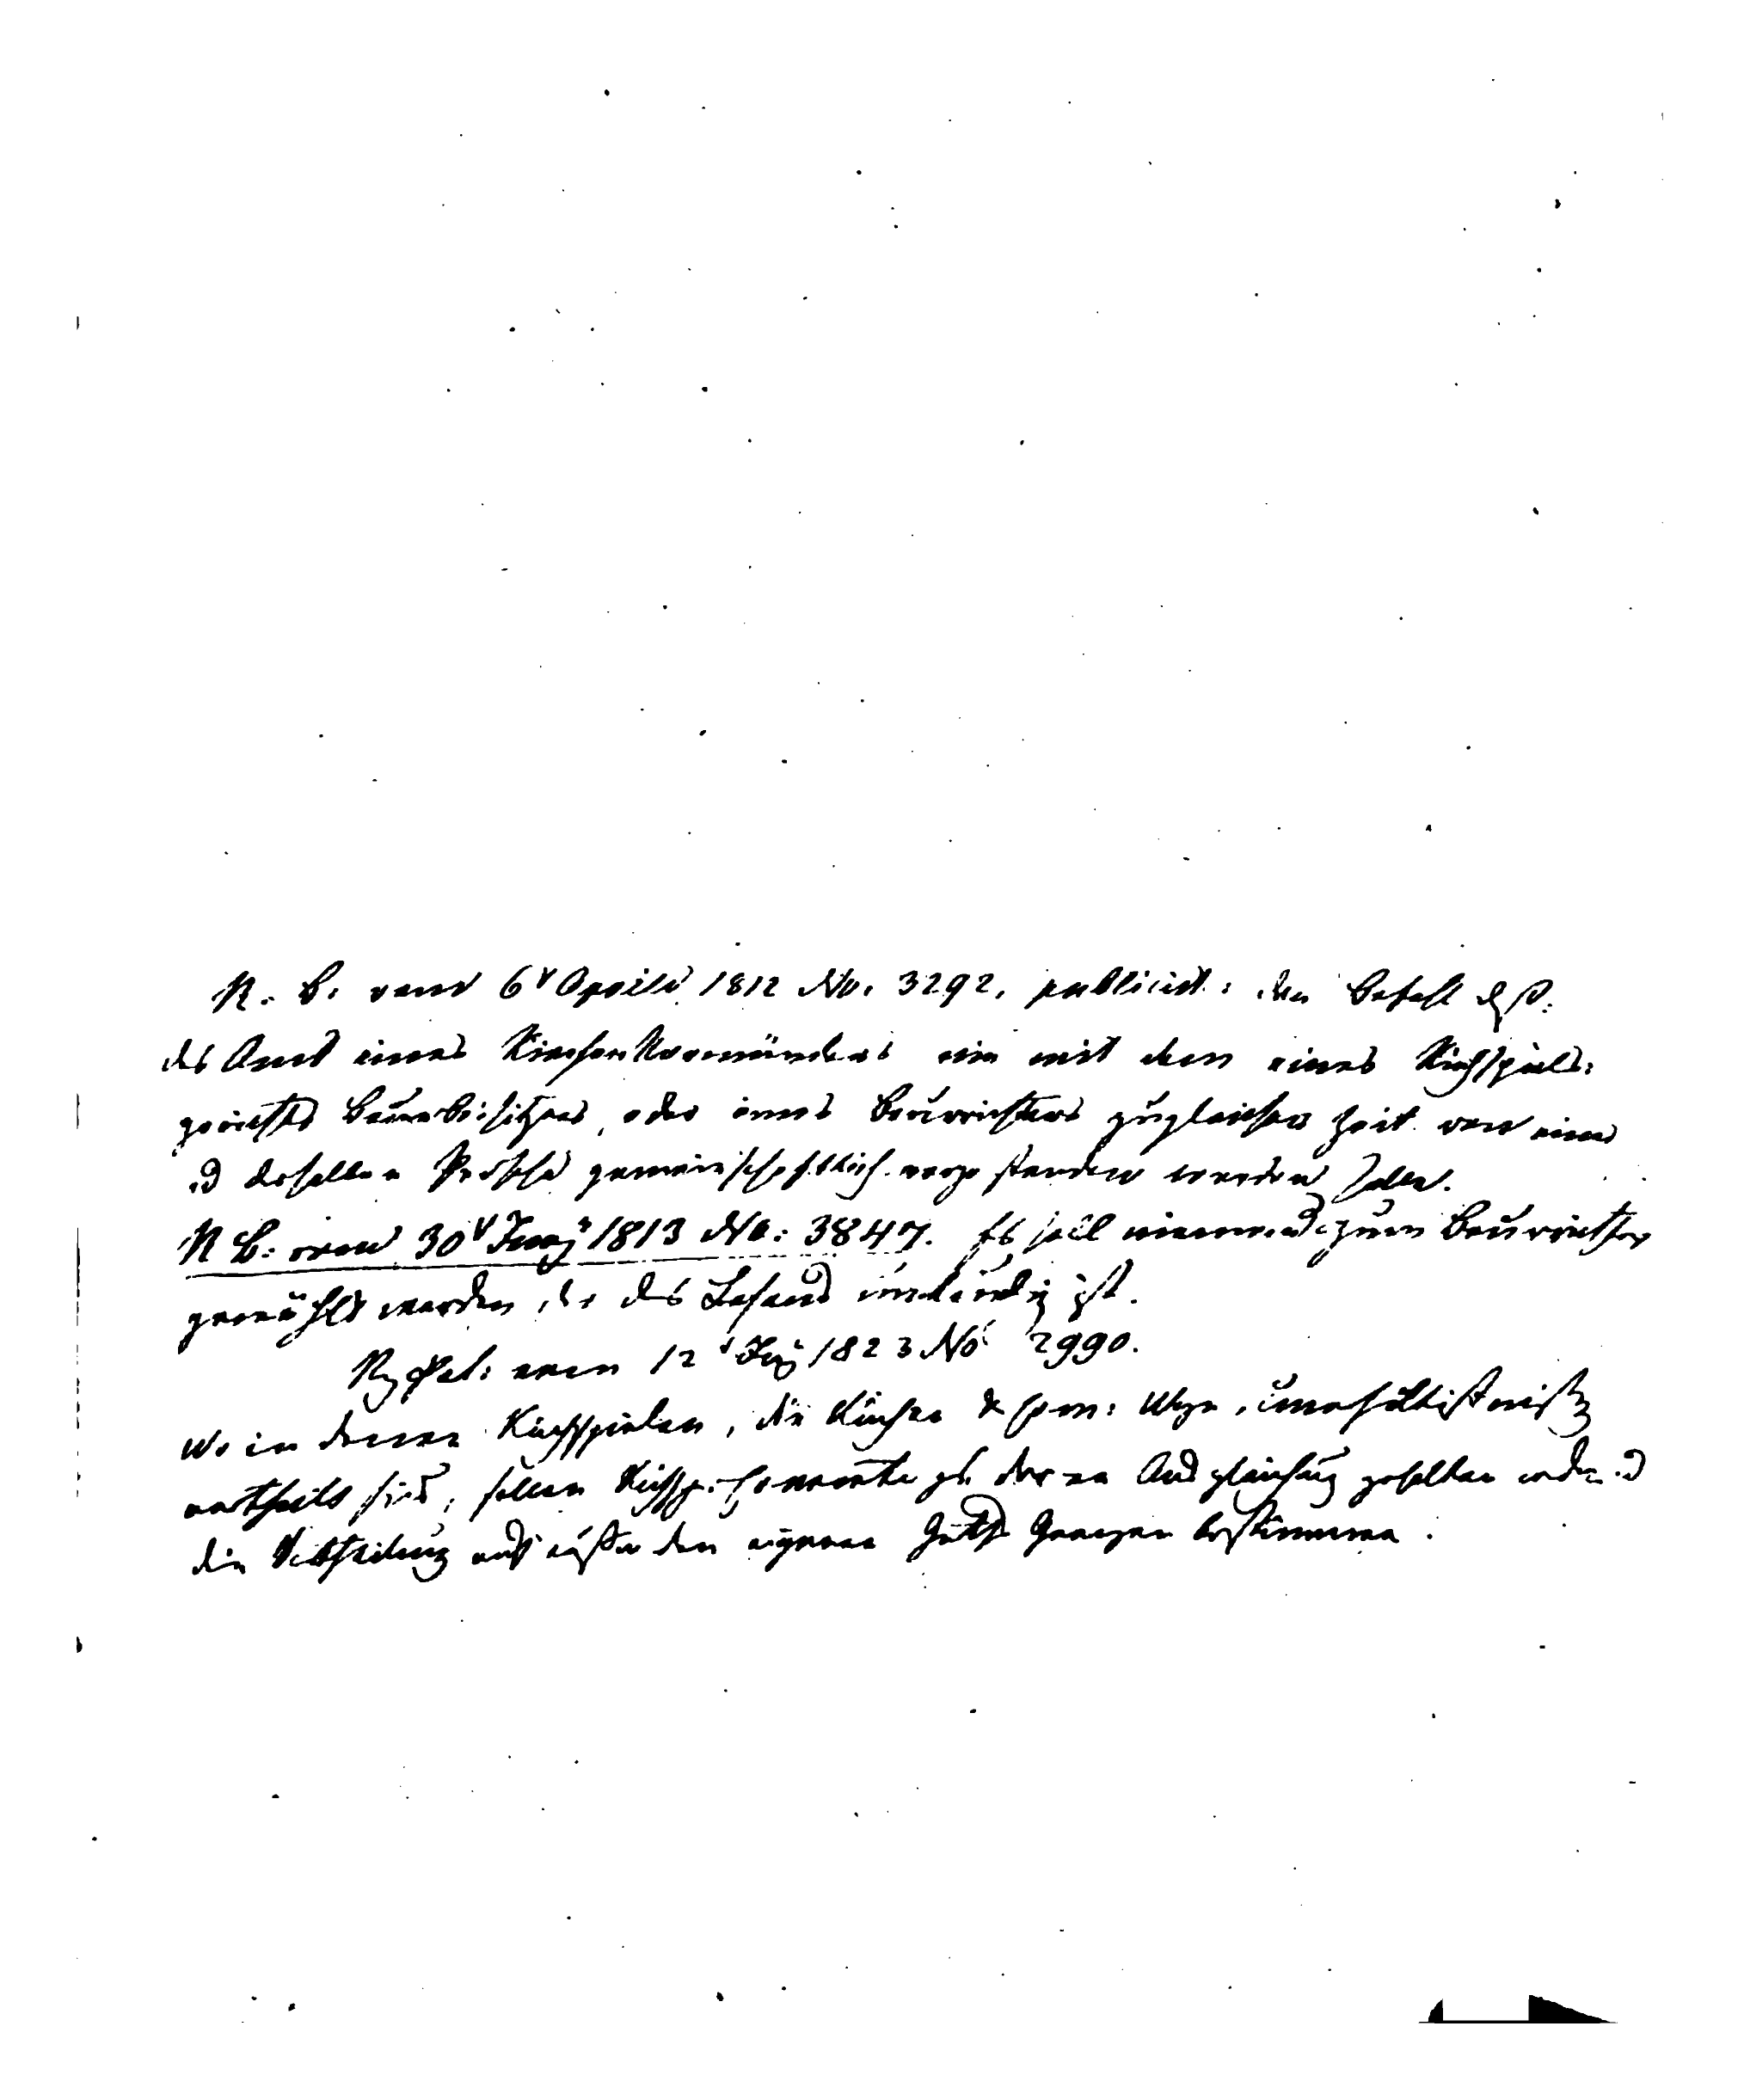 R. B. vom 6t April 1812 No. 3292. publicirt: den Befehl dß:
das Amt eines Kirchen Vormünders nie mit dem eines Kirchspiels:
gerichts Bauerbeisitzers, oder eines Baurrichters zugleicher Zeit von einer
u derselben Person gemeinschaftlich vorgestanden werden solle.
R B: vom 30t 1813 No: 3847. Es soll niemand zum Baurrichter
gewählt werden, der des Lesens unkundig ist.
vom 12t 1823 No 2990.
Wo in denen Kirchspielen, die Kirchen Wege, unverhältnißm
vertheilt sind, sollen Kirchsp: Convente zu deren Ausgleichung gehalten werden u
die Vertheilung auch außer den eigenen Guts Grenzen bestimmen.